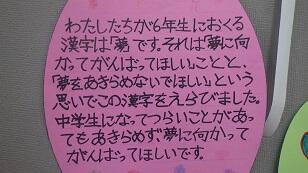 わたしたちが6年生におくる
漢字は「夢」です。それは「夢に向
かってがんばってほしい」ことと、
「夢をあきらめないでほしい」という
思いでこの漢字をえらびました。
中学生になってつらいことがあっ
てもあきらめず夢に向かって
がんばってほしいです。